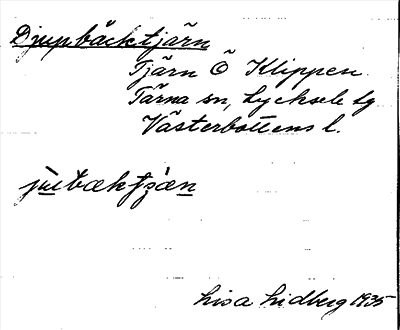 Djupbäcktjärn
Tjärn Ö Klippen.
Tärna sn, Lycksele lg
Västerbottens l.
Lisa Lidberg 1935